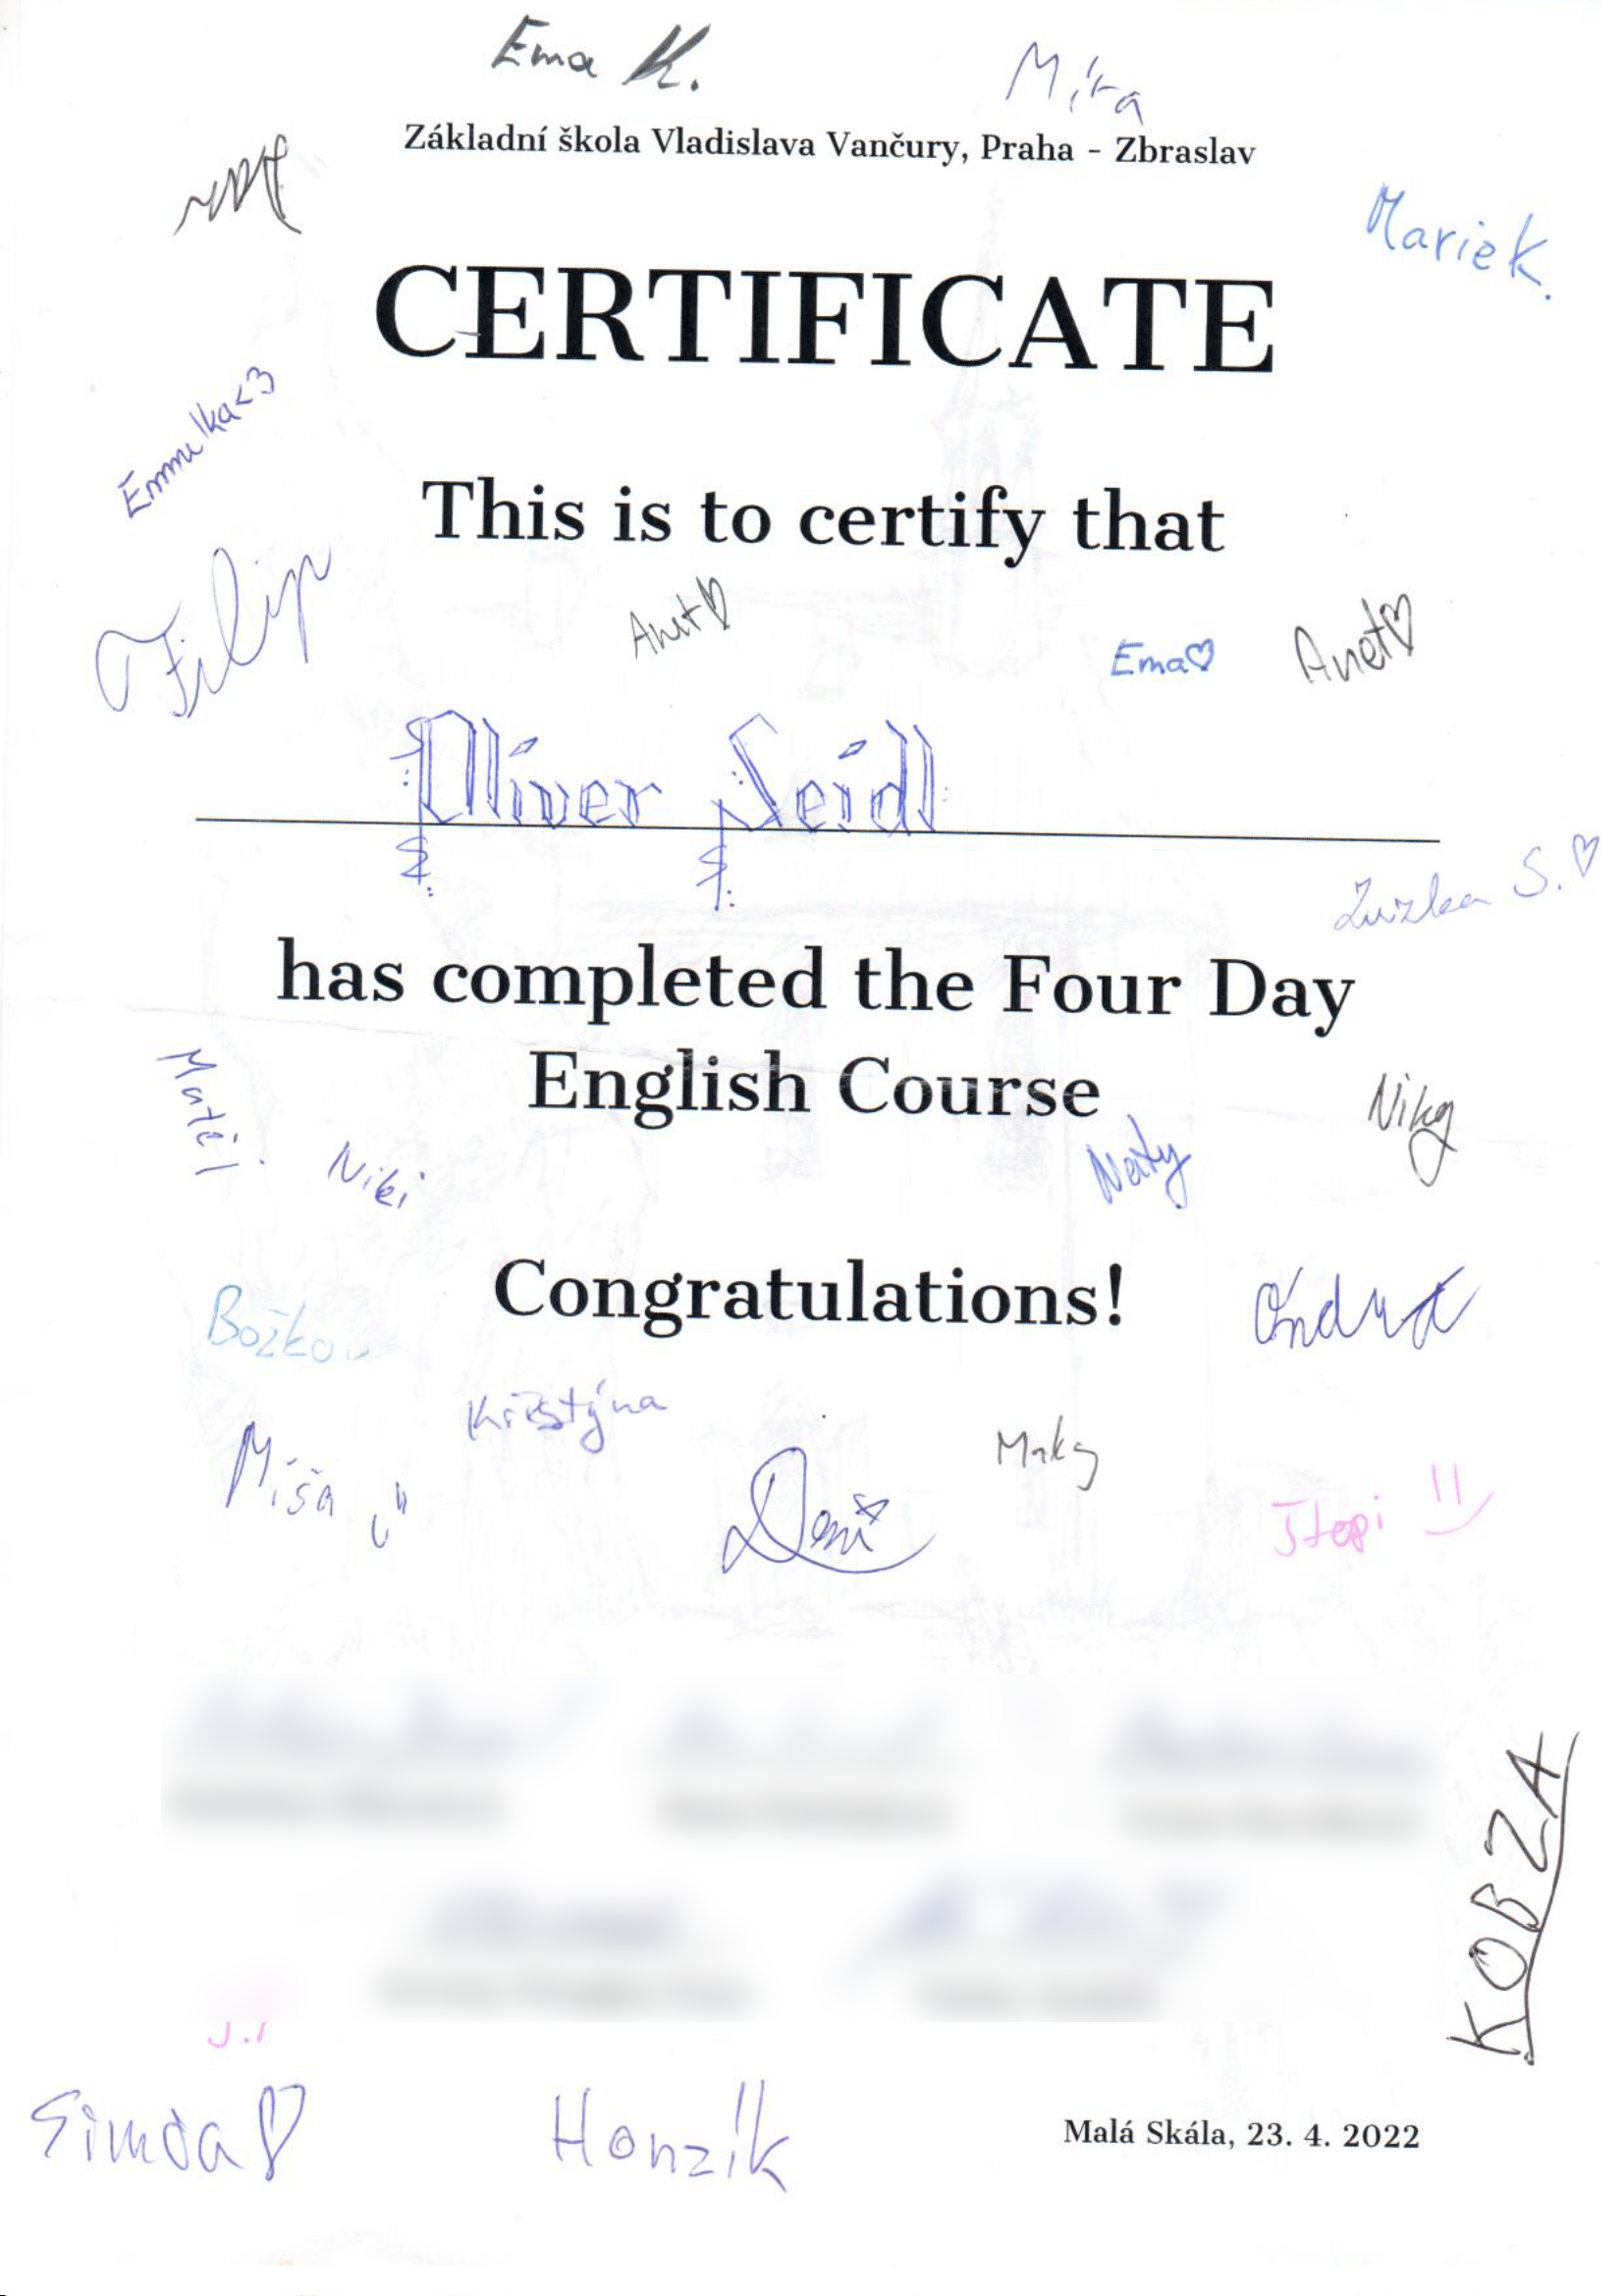 Ema K.
Míra
Základní škola Vladislava Vančury, Praha - Zbraslav
Mariek.
CERTIFICATE
Emmulka<3
This is to certify that
Filip
Anet♡
Ema♡
Anet♡
Oliver Seidl
Zuizka S.♡
has completed the Four Day
English Course
Matěj
Niki
Naty
Niky
Congratulations!
Božkov
Ondra
Kristýna
Míša
Deni
Maky
Štepi
KOBZA
Simča♡
Honzík
Malá Skála, 23. 4. 2022